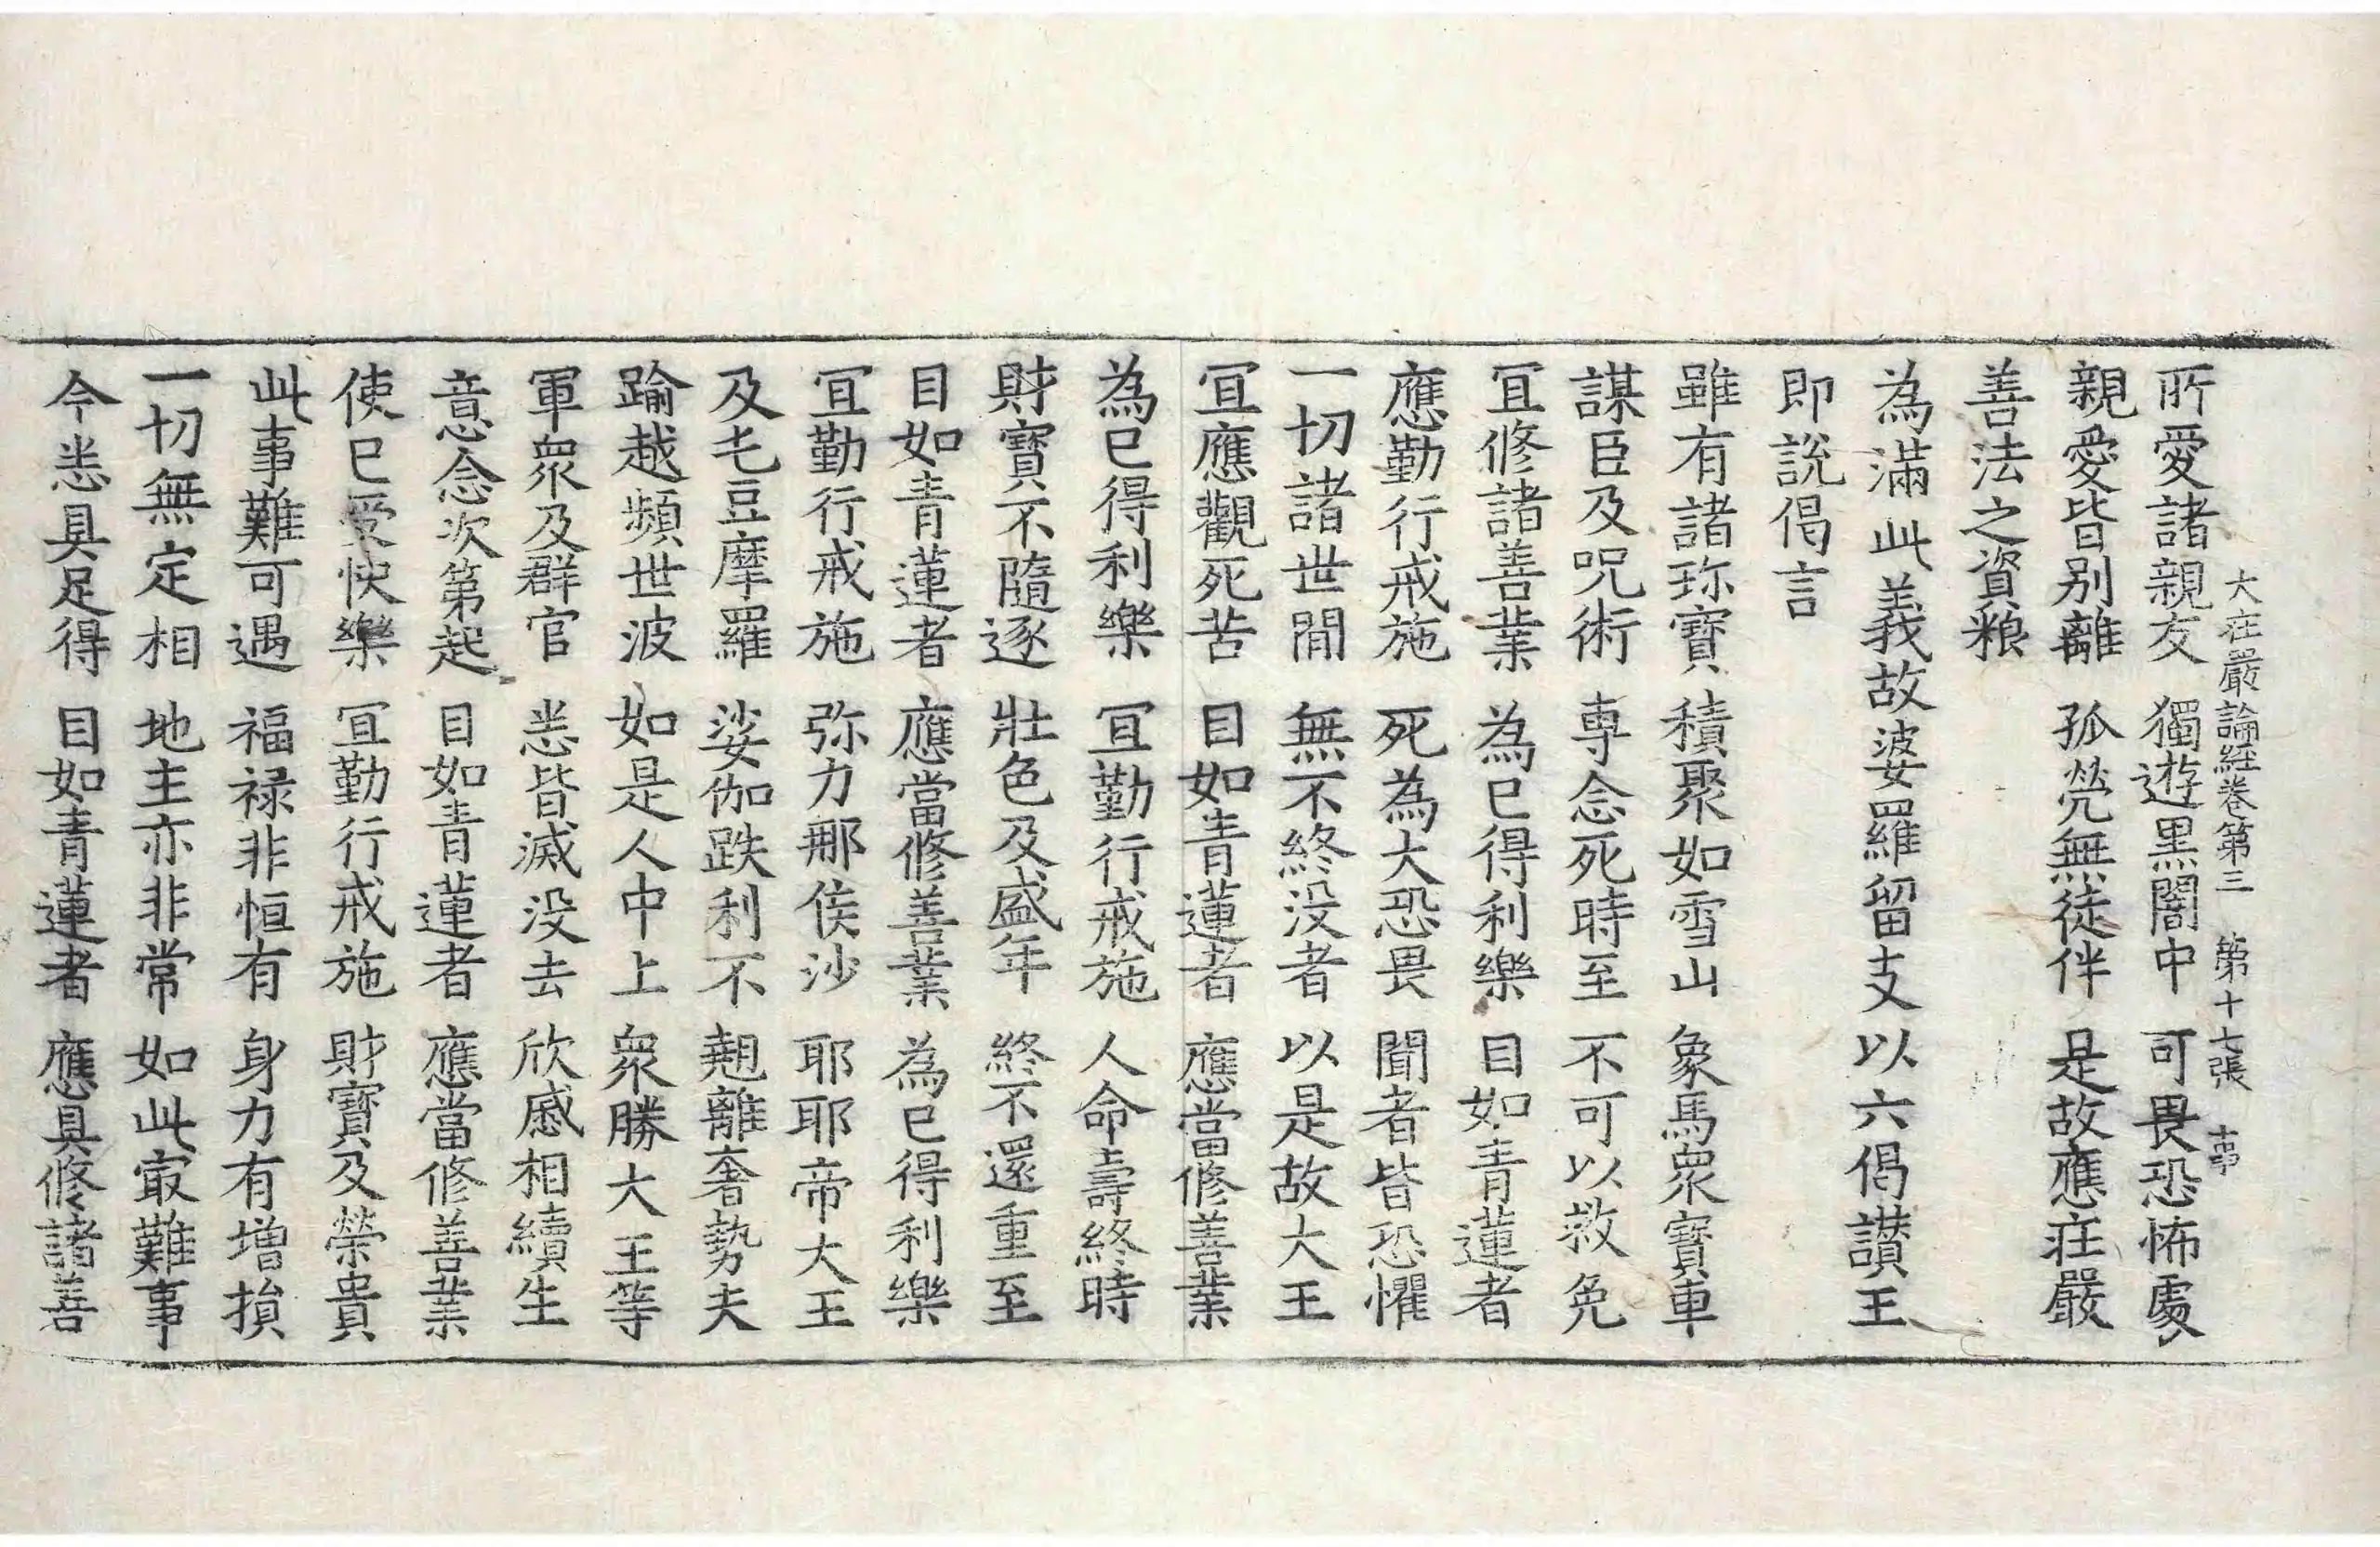 大莊嚴論經卷第三　第十七張　事
所愛諸親友　獨遊黑闇中　可畏恐怖處
親愛皆別離　孤煢無徒伴　是故應莊嚴
善法之資粮
為滿此義故婆羅留支以六偈讃王
即說偈言
雖有諸珎寶　積聚如雪山　象馬衆寶車
謀臣及呪術　専念死時至　不可以救免
冝修諸善業　為已得利樂　目如青蓮者
應勤行戒施　死為大恐畏　聞者皆恐懼
一切諸世間　無不終没者　以是故大王
冝應觀死苦　目如青蓮者　應當修善業
為已得利樂　冝勤行戒施　人命壽終時
財寶不隨逐　壯色及盛年　終不還重至
目如青蓮者　應當修善業　為已得利樂
冝勤行戒施　弥力那侯沙　耶耶帝大王
及乇豆摩羅　娑伽跌利不　翹離奢勢夫
踰越頻世波　如是人中上　衆勝大王等
軍衆及群官　悉皆滅没去　欣慼相續生
意念次第起　目如青蓮者　應當修善業
使已受快樂　冝勤行戒施　財寶及榮貴
此事難可遇　福禄非恒有　身力有增損
一切無定相　地主亦非常　如此冣難事
今悉具足得　目如青蓮者　應具修諸善